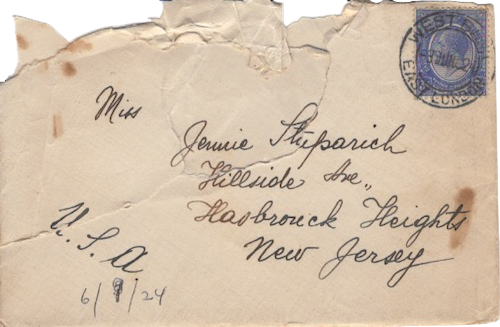 WEST
EAST LONDON
Miss
Jennie Stuparich
Hillside Ave.,
Hasbrouck Heights
New Jersey
U.S.A.
6/9/24